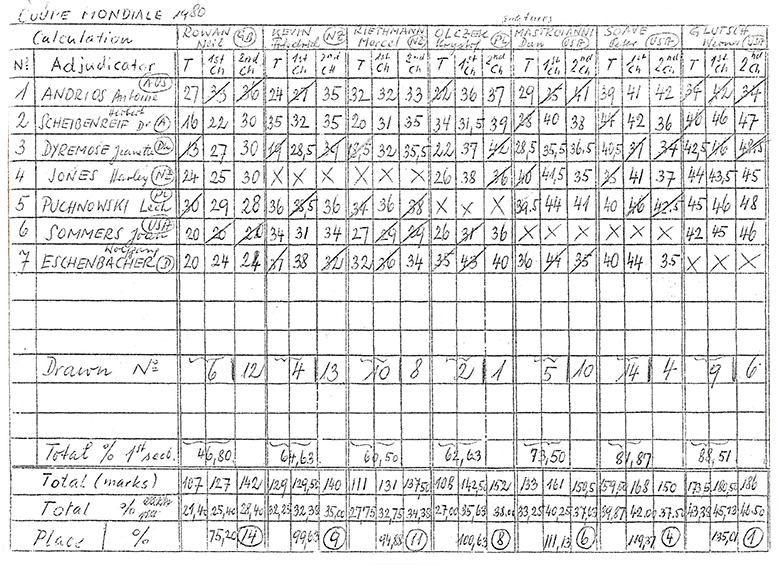 COUPE MONDIALE 1980
Calculation ROWAN Neil GB KEVIN Friedrich NZ RIETHMANN Marcel NZ OLCZEK Krysztof PL MASTROIANNI Dan USA SOAVE Peter USA GLUTSCH Werner USA
No Adjudicator T 1st Ch 2nd Ch T 1st Ch 2nd CH T 1st Ch 2nd Ch T 1st Ch 2nd Ch T 1st Ch 2nd Ch T 1st Ch 2nd Ch T 1st Ch 2nd Ch
1 ANDRIOS Antoine AUS 27 35 36 24 27 35 32 32 33 22 36 37 29 25 41 39 41 42 34 42 34
2 SCHEIBENREIF Dr Herbert A 16 22 30 35 32 35 20 31 35 34 31,5 39 28 40 38 47 42 36 40 46 47
3 DYREMOSE Jeanette Dn 13 27 30 19 28,5 39 18,5 32 35,5 22 37 42 28,5 35,5 36,5 40,5 31 34 42,5 46 48,5
4 JONES Harley NZ 24 25 30 X X X X X X 26 38 36 40 41,5 35 35 41 37 44 43,5 45
5 PUCHNOWSKI Lech PL 30 29 28 36 38,5 36 34 36 38 X X X 39,5 44 41 40 46 42,5 45 46 48
6 SOMMERS Joan USA 20 20 28 34 31 34 27 29 29 26 31 36 X X X X X X 42 45 46
7 ESCHENBACHER Wolfgang D 20 24 24 31 38 32 32 36 34 35 43 40 36 44 35 40 44 35 X X X
Drawn No 6 12 4 13 10 8 2 1 5 10 14 4 9 6
Total % 1st sect. 46,80 64,63 60,50 62,63 73,50 81,87 88,51
Total (marks) 107 127 142 129 129,50 140 111 131 137,50 108 142,50 152 133 161 150,5 159,50 168 150 173,5 180,50 186
Total % 21,40 25,40 28,40 32,25 32,38 35,00 27,75 32,75 34,38 27,00 35,63 38,00 33,25 40,25 37,63 39,87 42,00 37,50 43,38 45,13 46,50
Place % 75,20 14 99,63 9 94,88 11 100,63 8 111,13 6 119,37 4 135,01 1